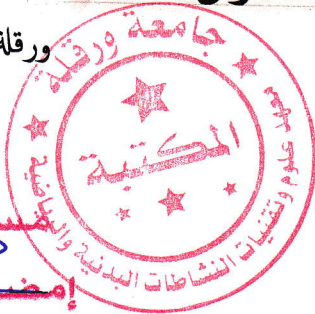 ورقلة
جامعة ورقلة
المكتبة
معهد علوم وتقنيات النشاطات البدنية والرياضية